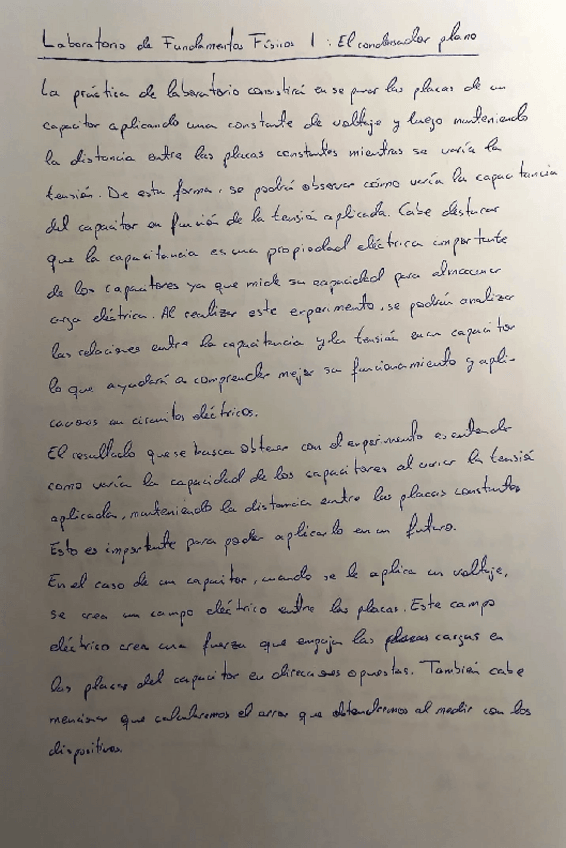 Laboratorio de Fundamentos Físicos 1: El condensador plano
La práctica de laboratorio consistirá en separar las placas de un
capacitor aplicando una constante de voltaje y luego manteniendo
la distancia entre las placas constantes mientras se varía la
tensión. De esta forma, se podrá observar cómo varía la capacitancia
del capacitor en función de la tensión aplicada. Cabe destacar
que la capacitancia es una propiedad eléctrica importante
de los capacitores ya que mide su capacidad para almacenar
carga eléctrica. Al realizar este experimento, se podrán analizar
las relaciones entre la capacitancia y la tensión en un capacitor
lo que ayudará a comprender mejor su funcionamiento y apli-
caciones en circuitos eléctricos.
El resultado que se busca obtener con el experimento es entender
como varía la capacidad de los capacitores al variar la tensión
aplicada, manteniendo la distancia entre las placas constantes
Esto es importante para poder aplicarlo en un futuro.
En el caso de un capacitor, cuando se le aplica un voltaje,
se crea un campo eléctrico entre las placas. Este campo
eléctrico crea una fuerza que empuja las cargas en
las placas del capacitor en direcciones opuestas. También cabe
mencionar que calcularemos el error que obtendremos al medir con los
dispositivos.